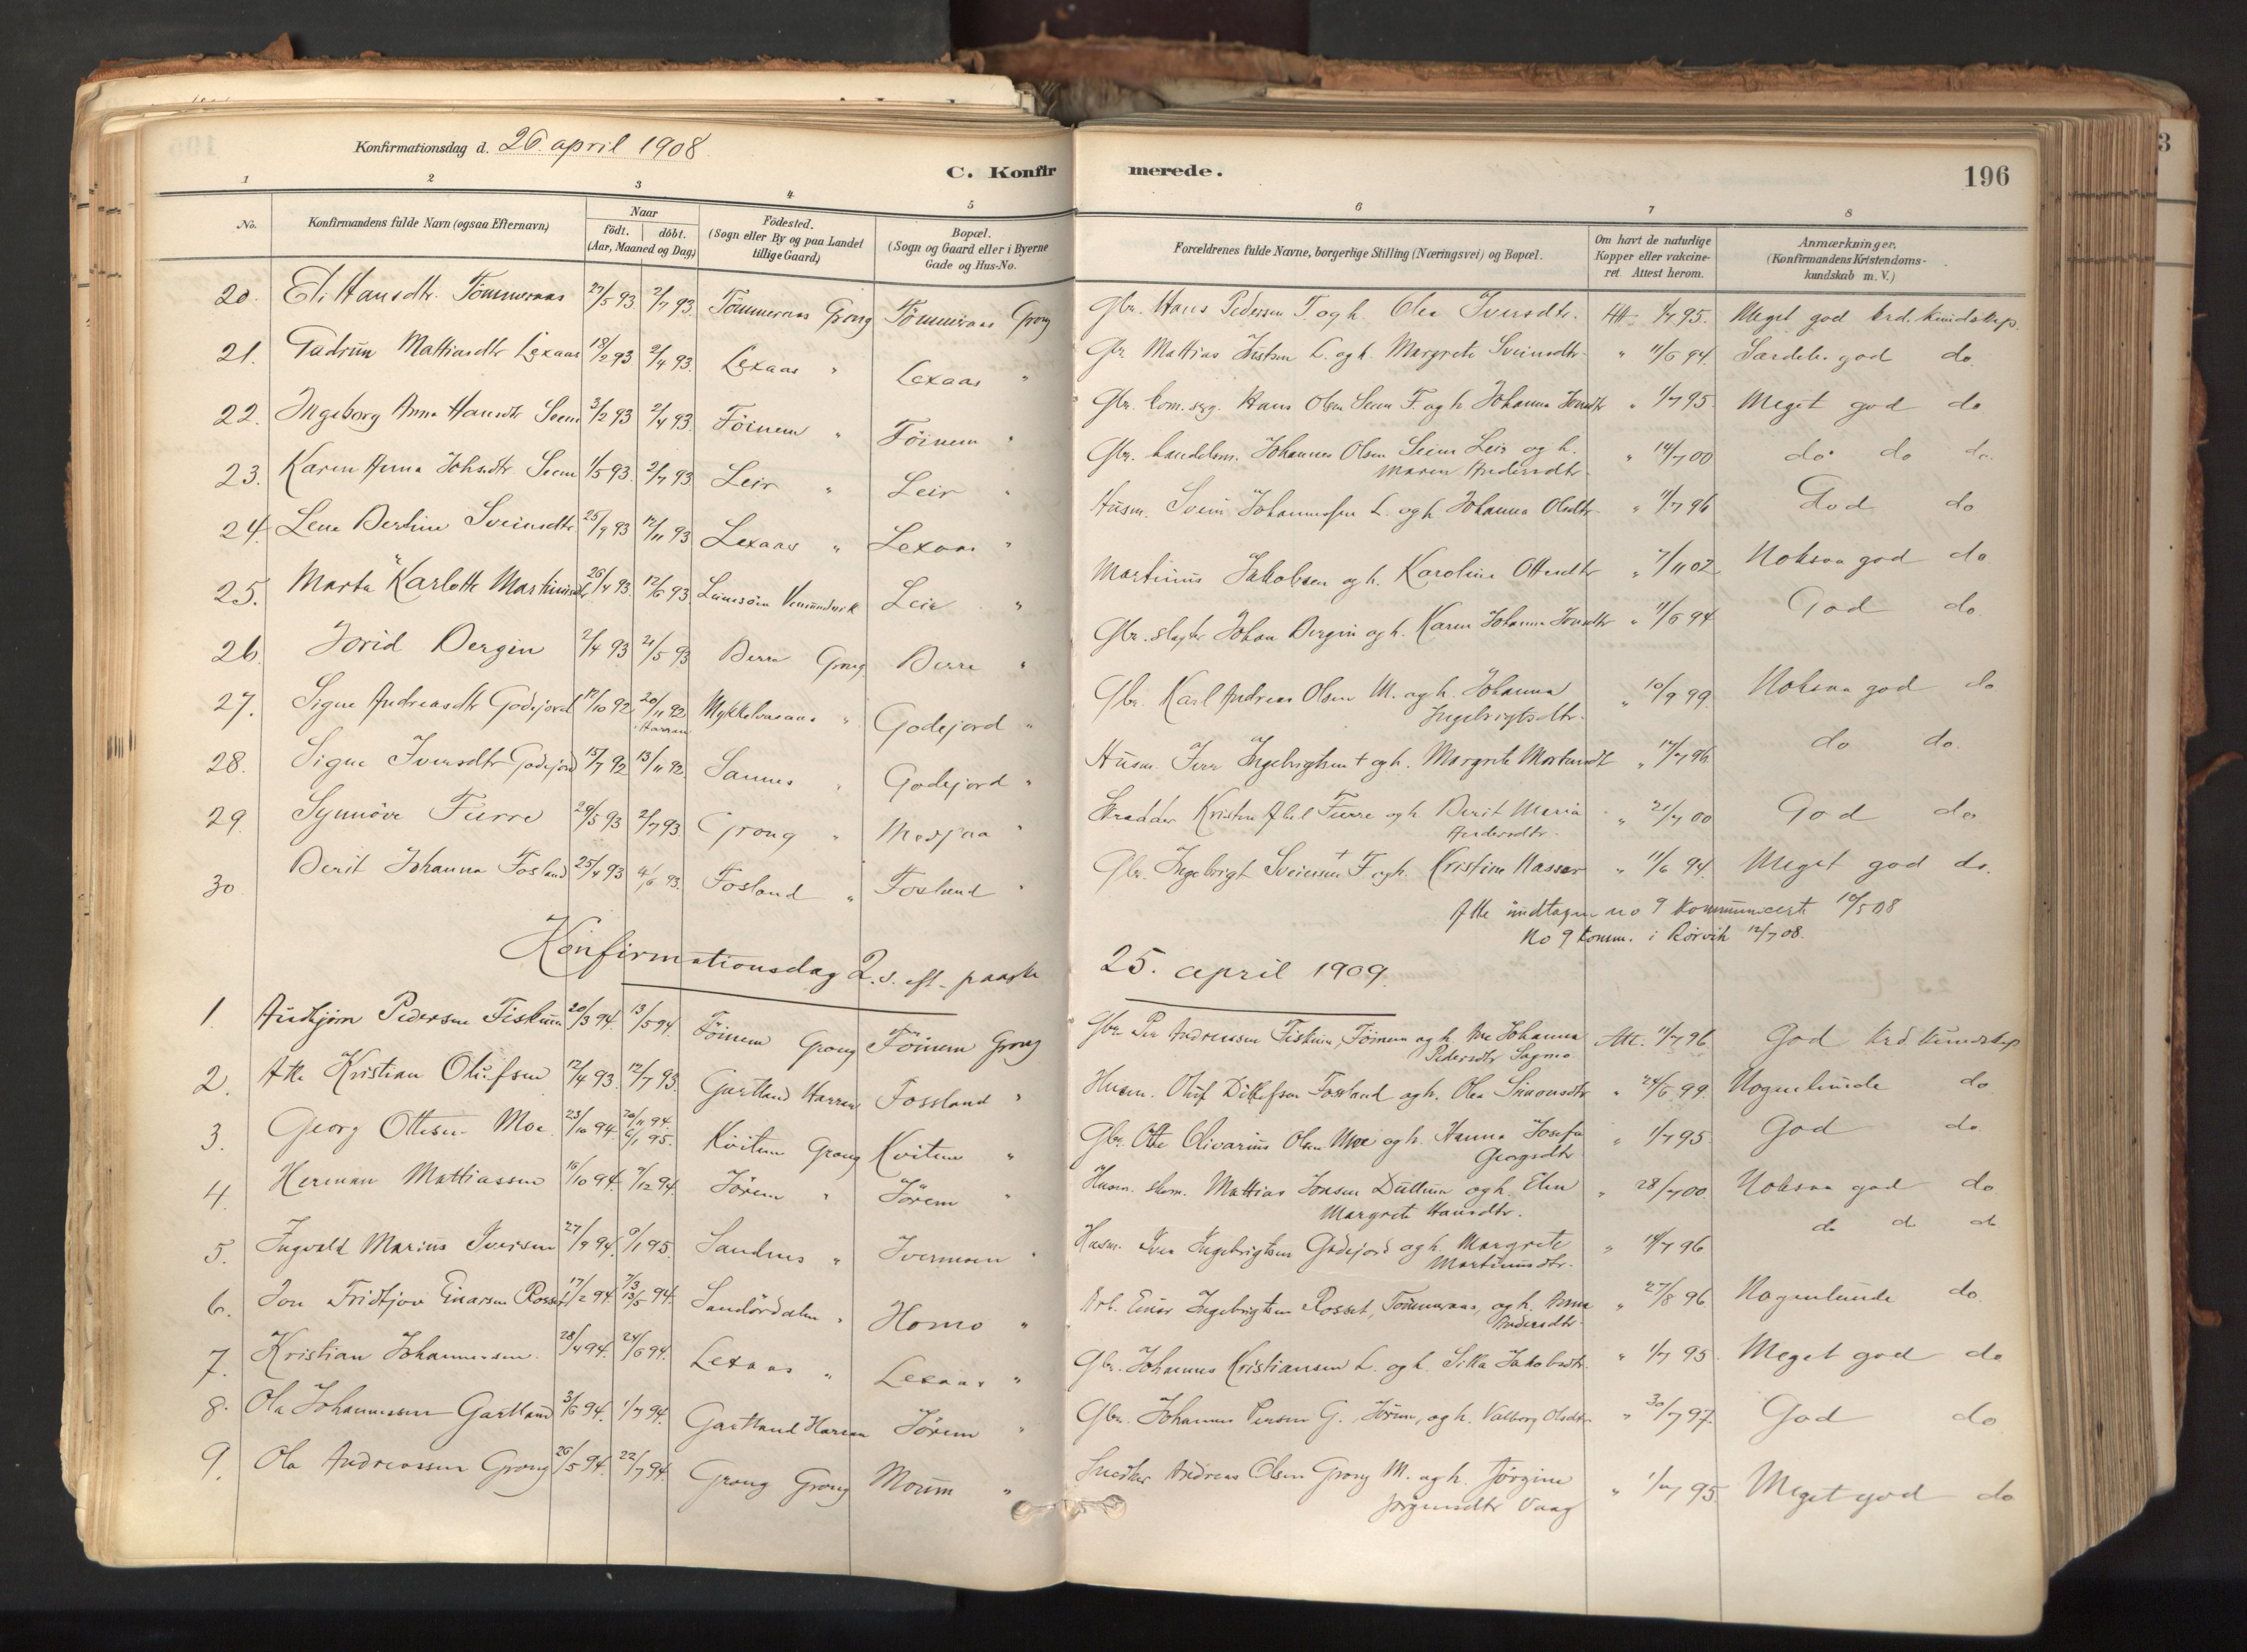 Konfirmationsdag d. 26. april 1908.
C. Konfirmerede.
196
3
1 2 3 4 5 6 7 8
No.
Konfirmandens fulde Navn (ogsaa Efternavn)
Naar födt. döbt. (Aar, Maaned og Dag)
Födested. (Sogn eller By og paa Landet tillige Gaard)
Bopæl. (Sogn og Gaard eller i Byerne Gade og Hus-No.
Forældrenes fulde Navne, borgerlige Stilling (Næringsvei) og Bopæl.
Om havt de naturlige Kopper eller vakcineret. Attest herom.
Anmærkninger. (Konfirmandens Kristendomskundskab m. V.)
20. Eli Hansdtr. Tömmeraas 27/5 93. 2/7 93. Tömmeraas Grong Tömmeraas Grong Gbr. Hans Pedersen T. og h. Olea Iversdtr. Att. 1/7 95. Meget god krd. kundskap.
21. Gudrun Mattiasdtr Lexaas 18/2 93 2/4 93. Lexaas " Lexaas " Gbr Mattias L. og h. Margrete Sveinsdtr. " 11/6 94. Særdeles god do.
22. Ingeborg Anna Hansdtr Seem 3/2 93 2/4 93. Föinem " Föinem " Gbr. Hans Olsen Seem F. og h. Johanna " 1/7 95. Meget god do
23. Karen Anna Johsdtr. Seem 1/5 93. 2/7 93 Leir " Leir " Gbr. handelsm. Johannes Olsen Seem Leir og h. Maren Andersdtr. " 14/7 00 do. do do.
24. Lena Berline Sveinsdtr. 25/9 93 12/11 93 Lexaas " Lexaas " Husm. Svein Johannesen L. og h. Johanna Olsdtr. " 11/7 96 God do
25. Marta Karlotte 26/4 93. 12/6 93. Vemundvik Leir " Martinus Jakobsen og h. Karoline Ottesdtr " 7/11 02. Noksaa god do
26. Jorid Bergin 2/4 93 21/5 93 Berre Grong Berre " Gbr. Johan Bergin og h. Karen Johanna " 11/6 94 God do.
27. Signe Andreasdtr Godejord 17/10 92. 20/11 92 Harran Mykkelvasaas " Godejord " Gbr. Karl Andreas Olsen M. og h. Johanna Ingebrigtsdtr. " 10/9 99. Noksaa god do
28. Signe Iversdtr Godejord 15/7 92 13/11 92. Sannes " Godejord " Husm. Iver Ingebrigtsen † og h. Margrete " 14/7 96. do do.
29 Synnöve Furre 29/5 93 2/7 93. Grong " Medjaa " Skrædder Kristen Abel Furre og h Berit Maria Andersdtr. " 21/7 00 God do
30 Berit Johanna Fosland 25/4 93 4/6 93. Fosland " Fosland " Gbr. Ingebrigt Sveinsen † F. og h. Kristine Massar " 11/6 94. Meget god do.
Alle undtagen no 9 10/5 08
No 9 komm. i Rörvik 12/7 08.
Konfirmationsdag 2. s. eft. paaske 25. april 1909.
1. Audbjørn Pedersen Fiskum 20/3 94. 13/5 94. Föinem Grong Föinem Grong Gbr. Per Andreassen Fiskum, Föinem og h. Johanna Pedersdtr Sagmo Att. 11/7 96. God krd. kundskap
2. Atle Kristian Olufsen 12/4 93. 12/7 93. Gartland Harran Fossland " Husm. Oluf Ditlefsen Fossland og h. Olea Simonsdtr " 24/6 99. Nogenlunde do
3. Georg Ottesen Moe 23/10 94. 20/11 94. 6/1 95. Kvitum Grong Kvitum " Gbr. Otto Olivarius Olsen Moe og h. Hanna Josefa Georgsdtr " 1/7 95. God do
4. Herman Mattiassen 16/10 94. 9/12 94. Jörem " Jörem " Husm. skom. Mattias Jonsen Duttum og h. Elen Margrete Hansdtr. " 28/7 00. Noksaa god do
5. Ingvald Marius Iversen 27/9 94. 9/1 95. Sandnes " " Husm. Iver Ingebrigtsen Godejord og h. Margrete " 14/7 96 do do do
6. Jon Fridtjov Einarsen Rosset 17/2 94. 7/3 13/5 94. Sandördalen " Homo " Arb. Einar Ingebrigtsen Rosset, Tömmeraas, og h. Anna Andersdtr. " 27/8 96. Nogenlunde do.
7. Kristian Johannessen. 28/4 94. 24/6 94. Lexaas " Lexaas " Gbr. Johannes Kristiansen L. og h. Jakobsdtr. " 1/7 95. Meget god do
8. Ola Johannessen Gartland 3/6 94. 1/7 94. Gartland Harran Jörem " Gbr. Johannes Persen G. Jörem, og h. Valborg Olsdtr. " 30/7 97. God do
9. Ola Andreassen Grong 26/5 94. 22/7 94. Grong Grong Moum " Snedker Andreas Olsen Grong M. og h. Jørgine Jørgensdtr Vaag " 1/7 95. Meget god do